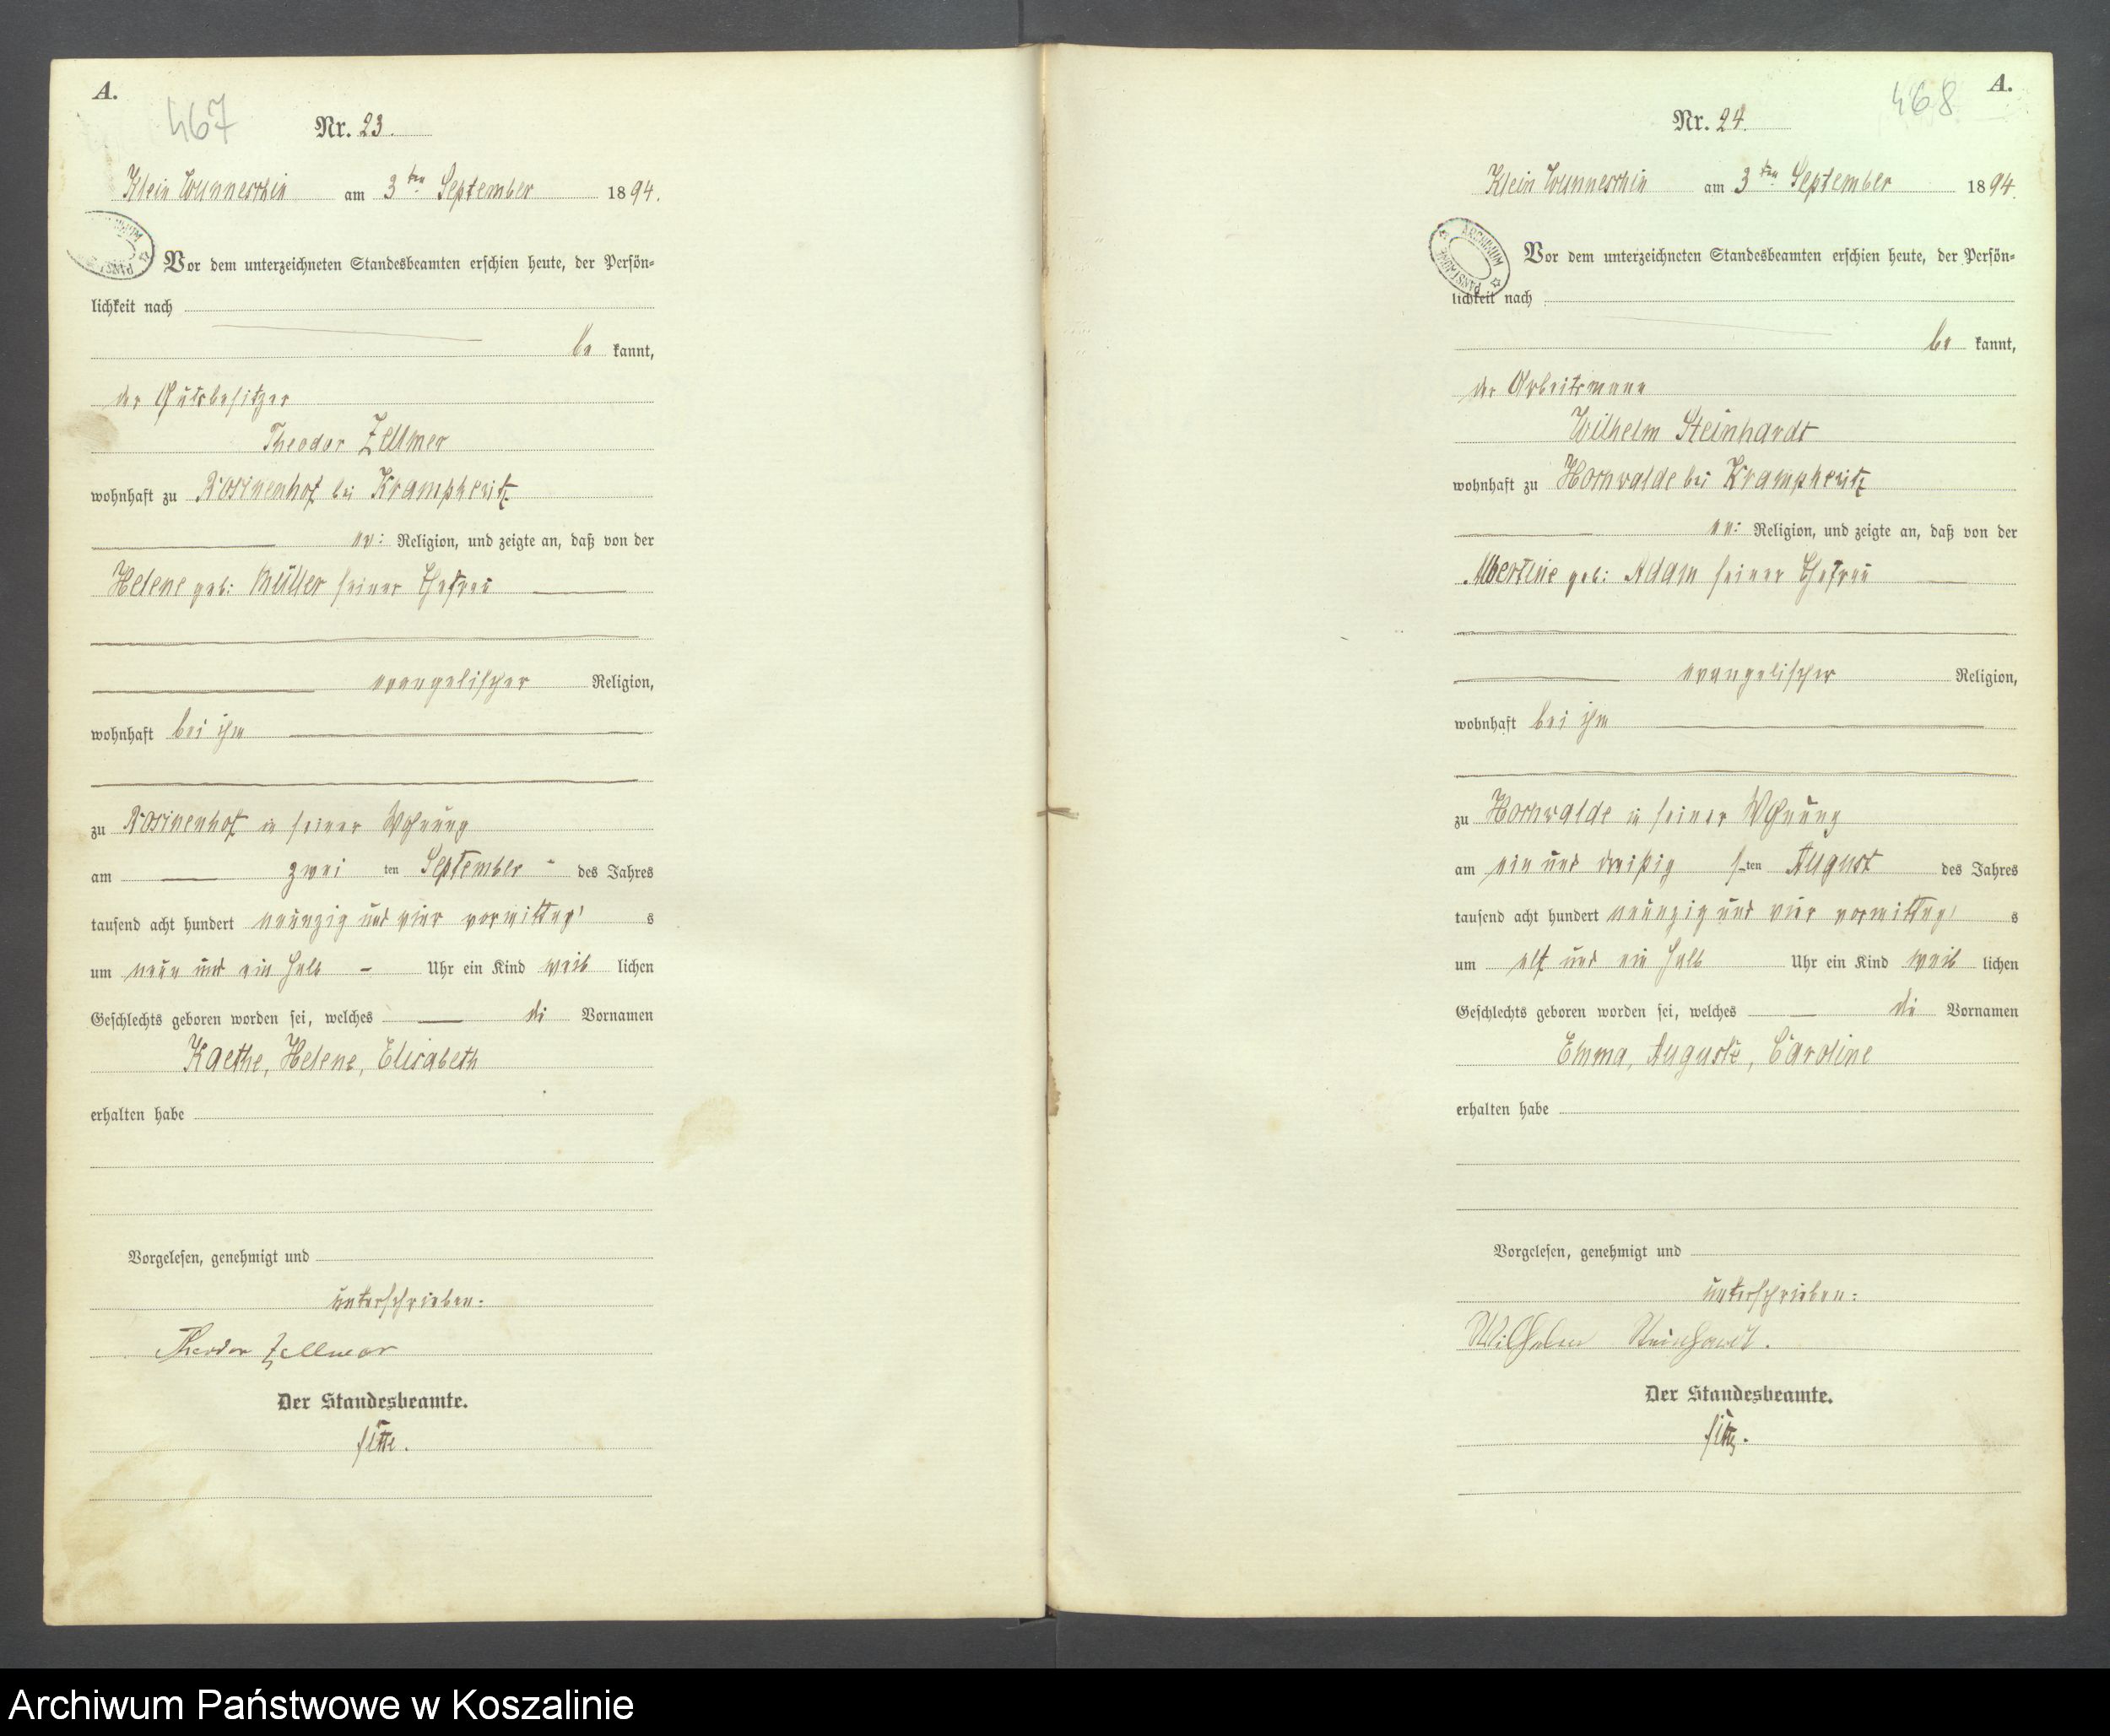 A.
467
Nr. 23.
Klein Wunneschin am 3ten September 1894.
Vor dem unterzeichneten Standesbeamten erschien heute, der Persön=
lichkeit nach
be kannt,
der Gutsbesitzer
Theodor Zellmer
wohnhaft zu Rosinenhof bei Krampkewitz
ev: Religion, und zeigte an, daß von der
Helene geb: Müller seiner Ehefrau
evangelischer Religion,
wohnhaft bei ihm
zu Rosinenhof in seiner Wohnung
am zwei ten September des Jahres
tausend acht hundert neunzig und vier vormittag s
um neun und ein halb Uhr ein Kind weib lichen
Geschlechts geboren worden sei, welches die Vornamen
Kaethe, Helene, Elisabeth
erhalten habe
Vorgelesen, genehmigt und
unterschrieben:
Theodor Zellmer
Der Standesbeamte.
A.
468
Nr. 24.
Klein Wunneschin am 3ten September 1894.
ARCHIWUM
Vor dem unterzeichneten Standesbeamten erschien heute, der Persön=
lichkeit nach
be kannt,
der Arbeitsmann
Wilhelm Steinhardt
wohnhaft zu Hornwalde bei Krampkewitz
ev: Religion, und zeigte an, daß von der
Albertine geb: Adam seiner Ehefrau
evangelischer Religion,
wohnhaft bei ihm
zu Hornwalde in seiner Wohnung
am ein und dreißig sten August des Jahres
tausend acht hundert neunzig und vier vormittag s
um elf und ein halb Uhr ein Kind weib lichen
Geschlechts geboren worden sei, welches die Vornamen
Emma, Auguste, Caroline
erhalten habe
Vorgelesen, genehmigt und
unterschrieben:
Wilhelm Steinhardt.
Der Standesbeamte.
Archiwum Państwowe w Koszalinie